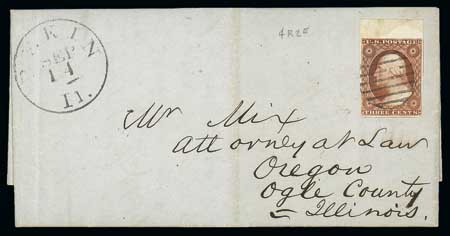 PEKIN
SEP
14
Il.
4R2E
U.S. POSTAGE
THREE CENTS
Mr Mix
Attorney at Law
Oregon
Ogle County
Illinois.